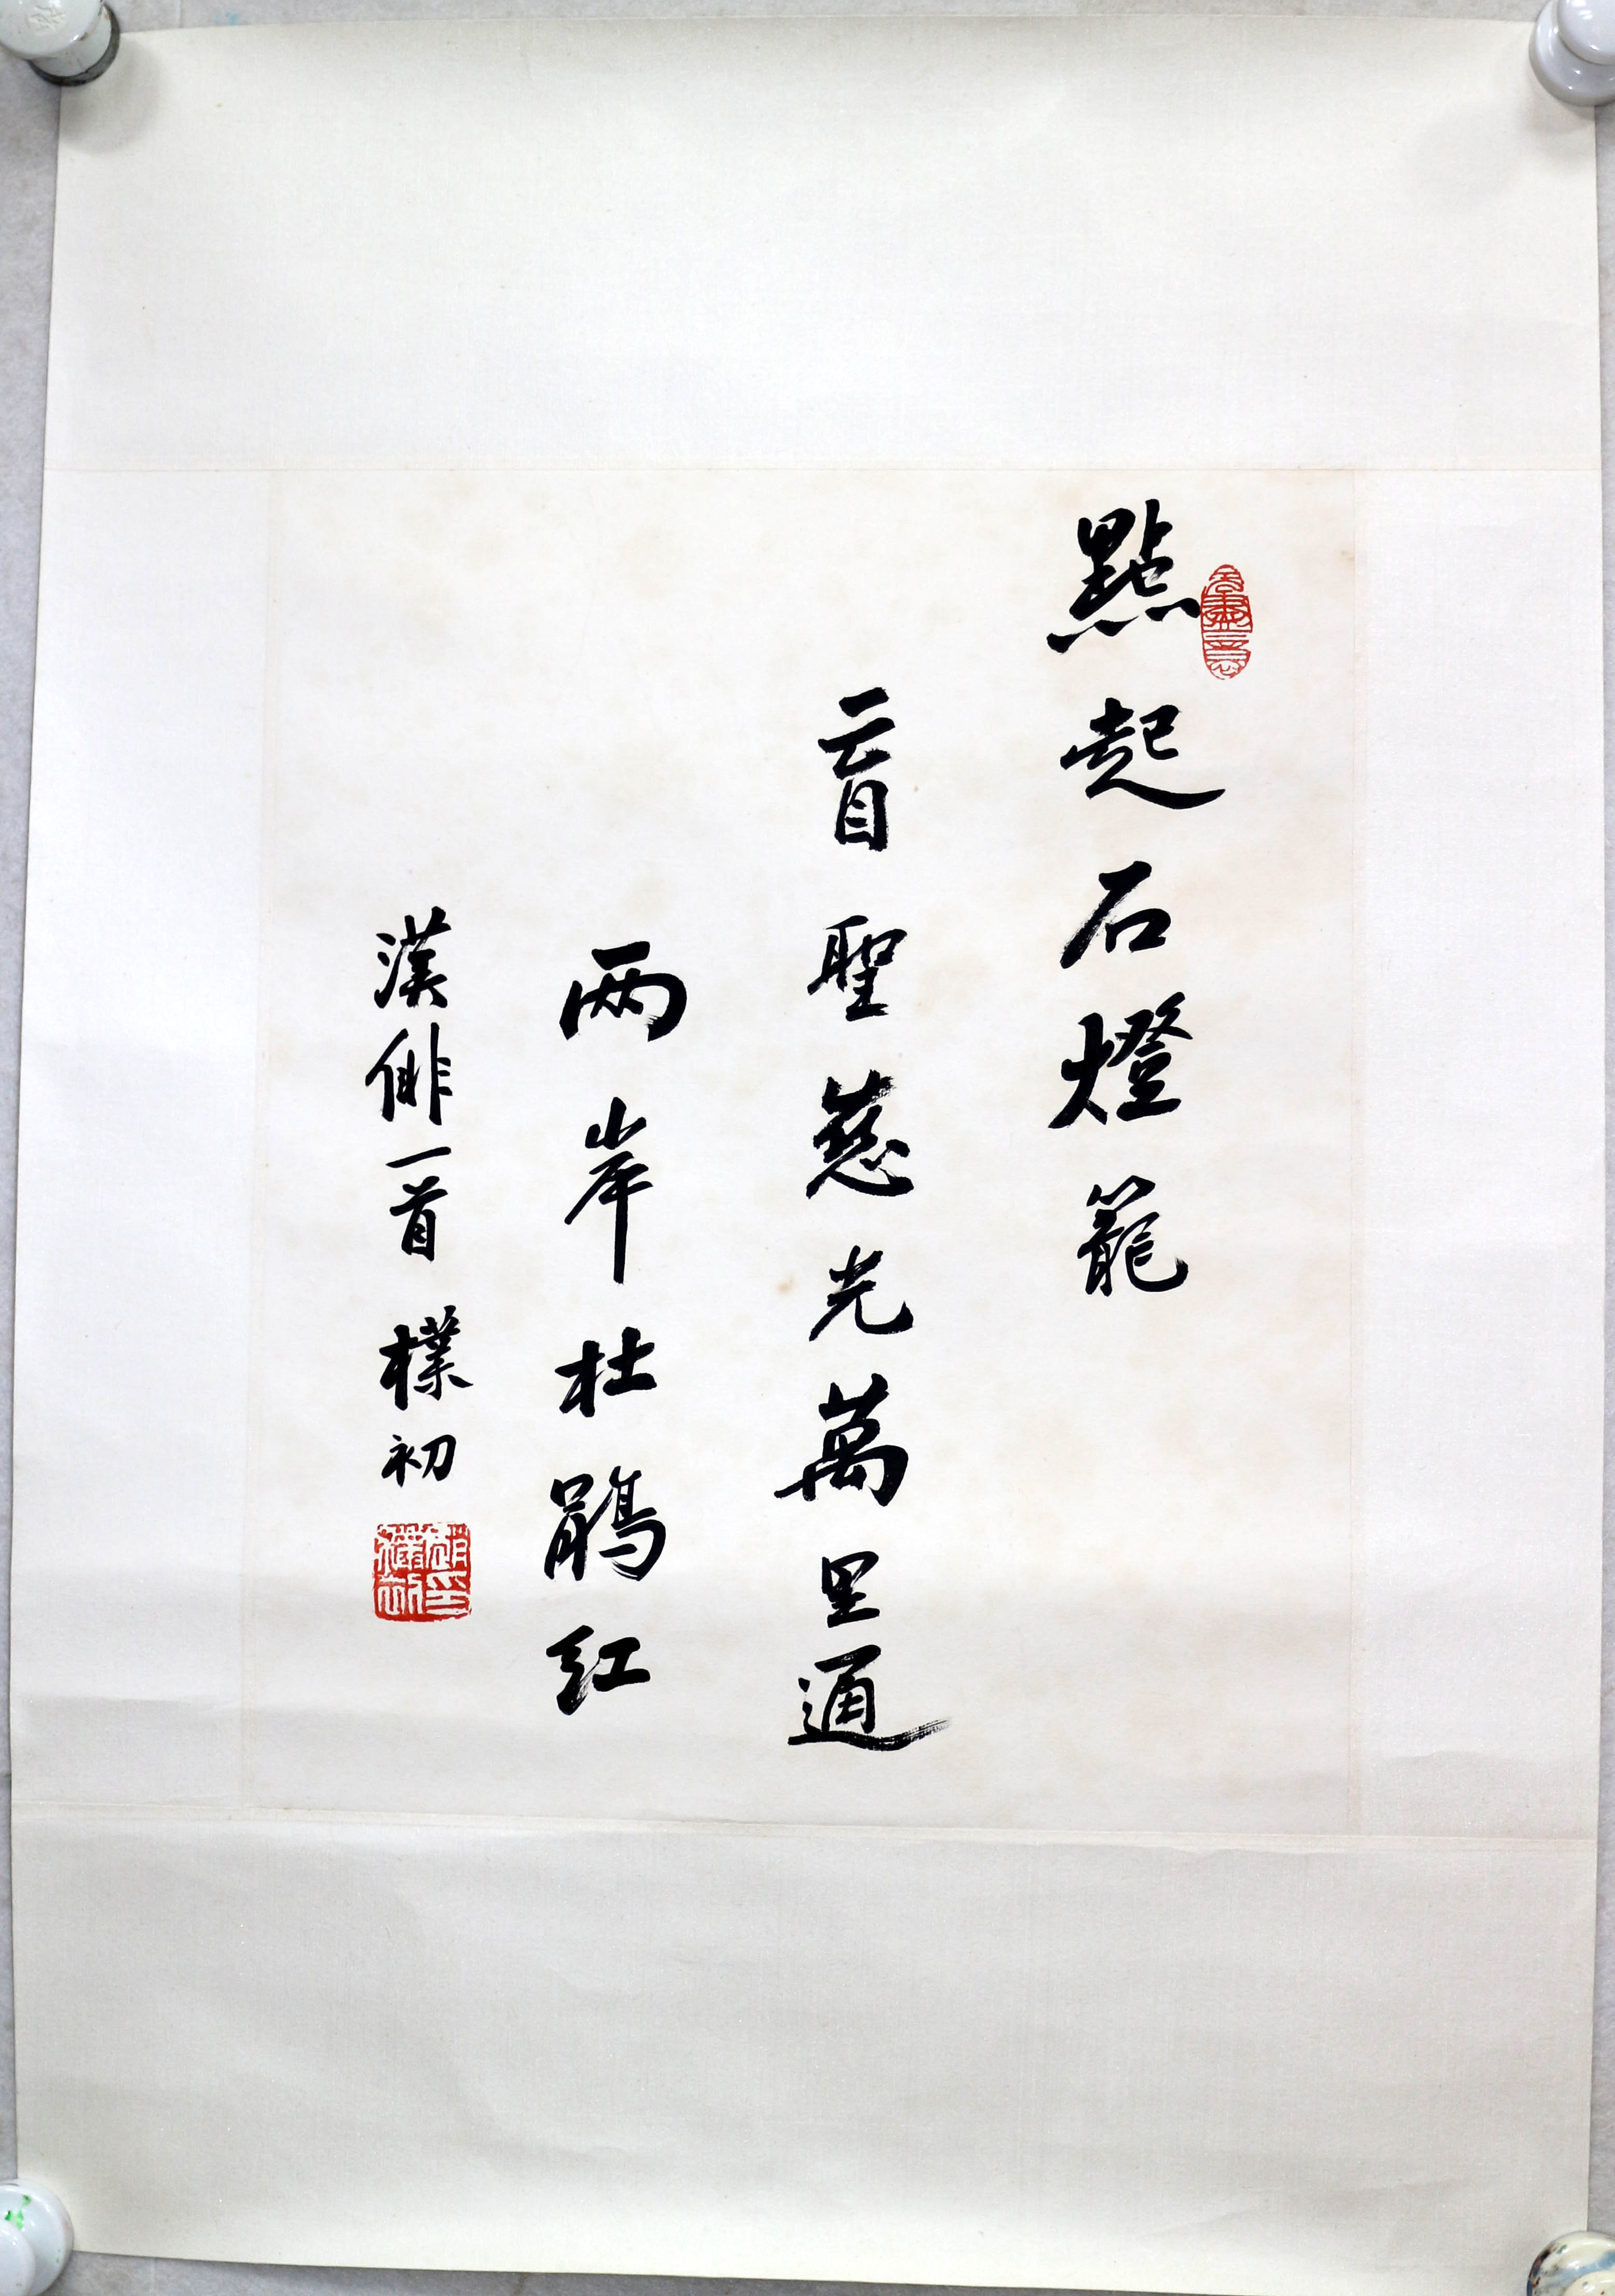 點起石燈籠
盲聖慈光萬里通
两岸杜鹃红
漢俳一首 樸初
趙樸初印